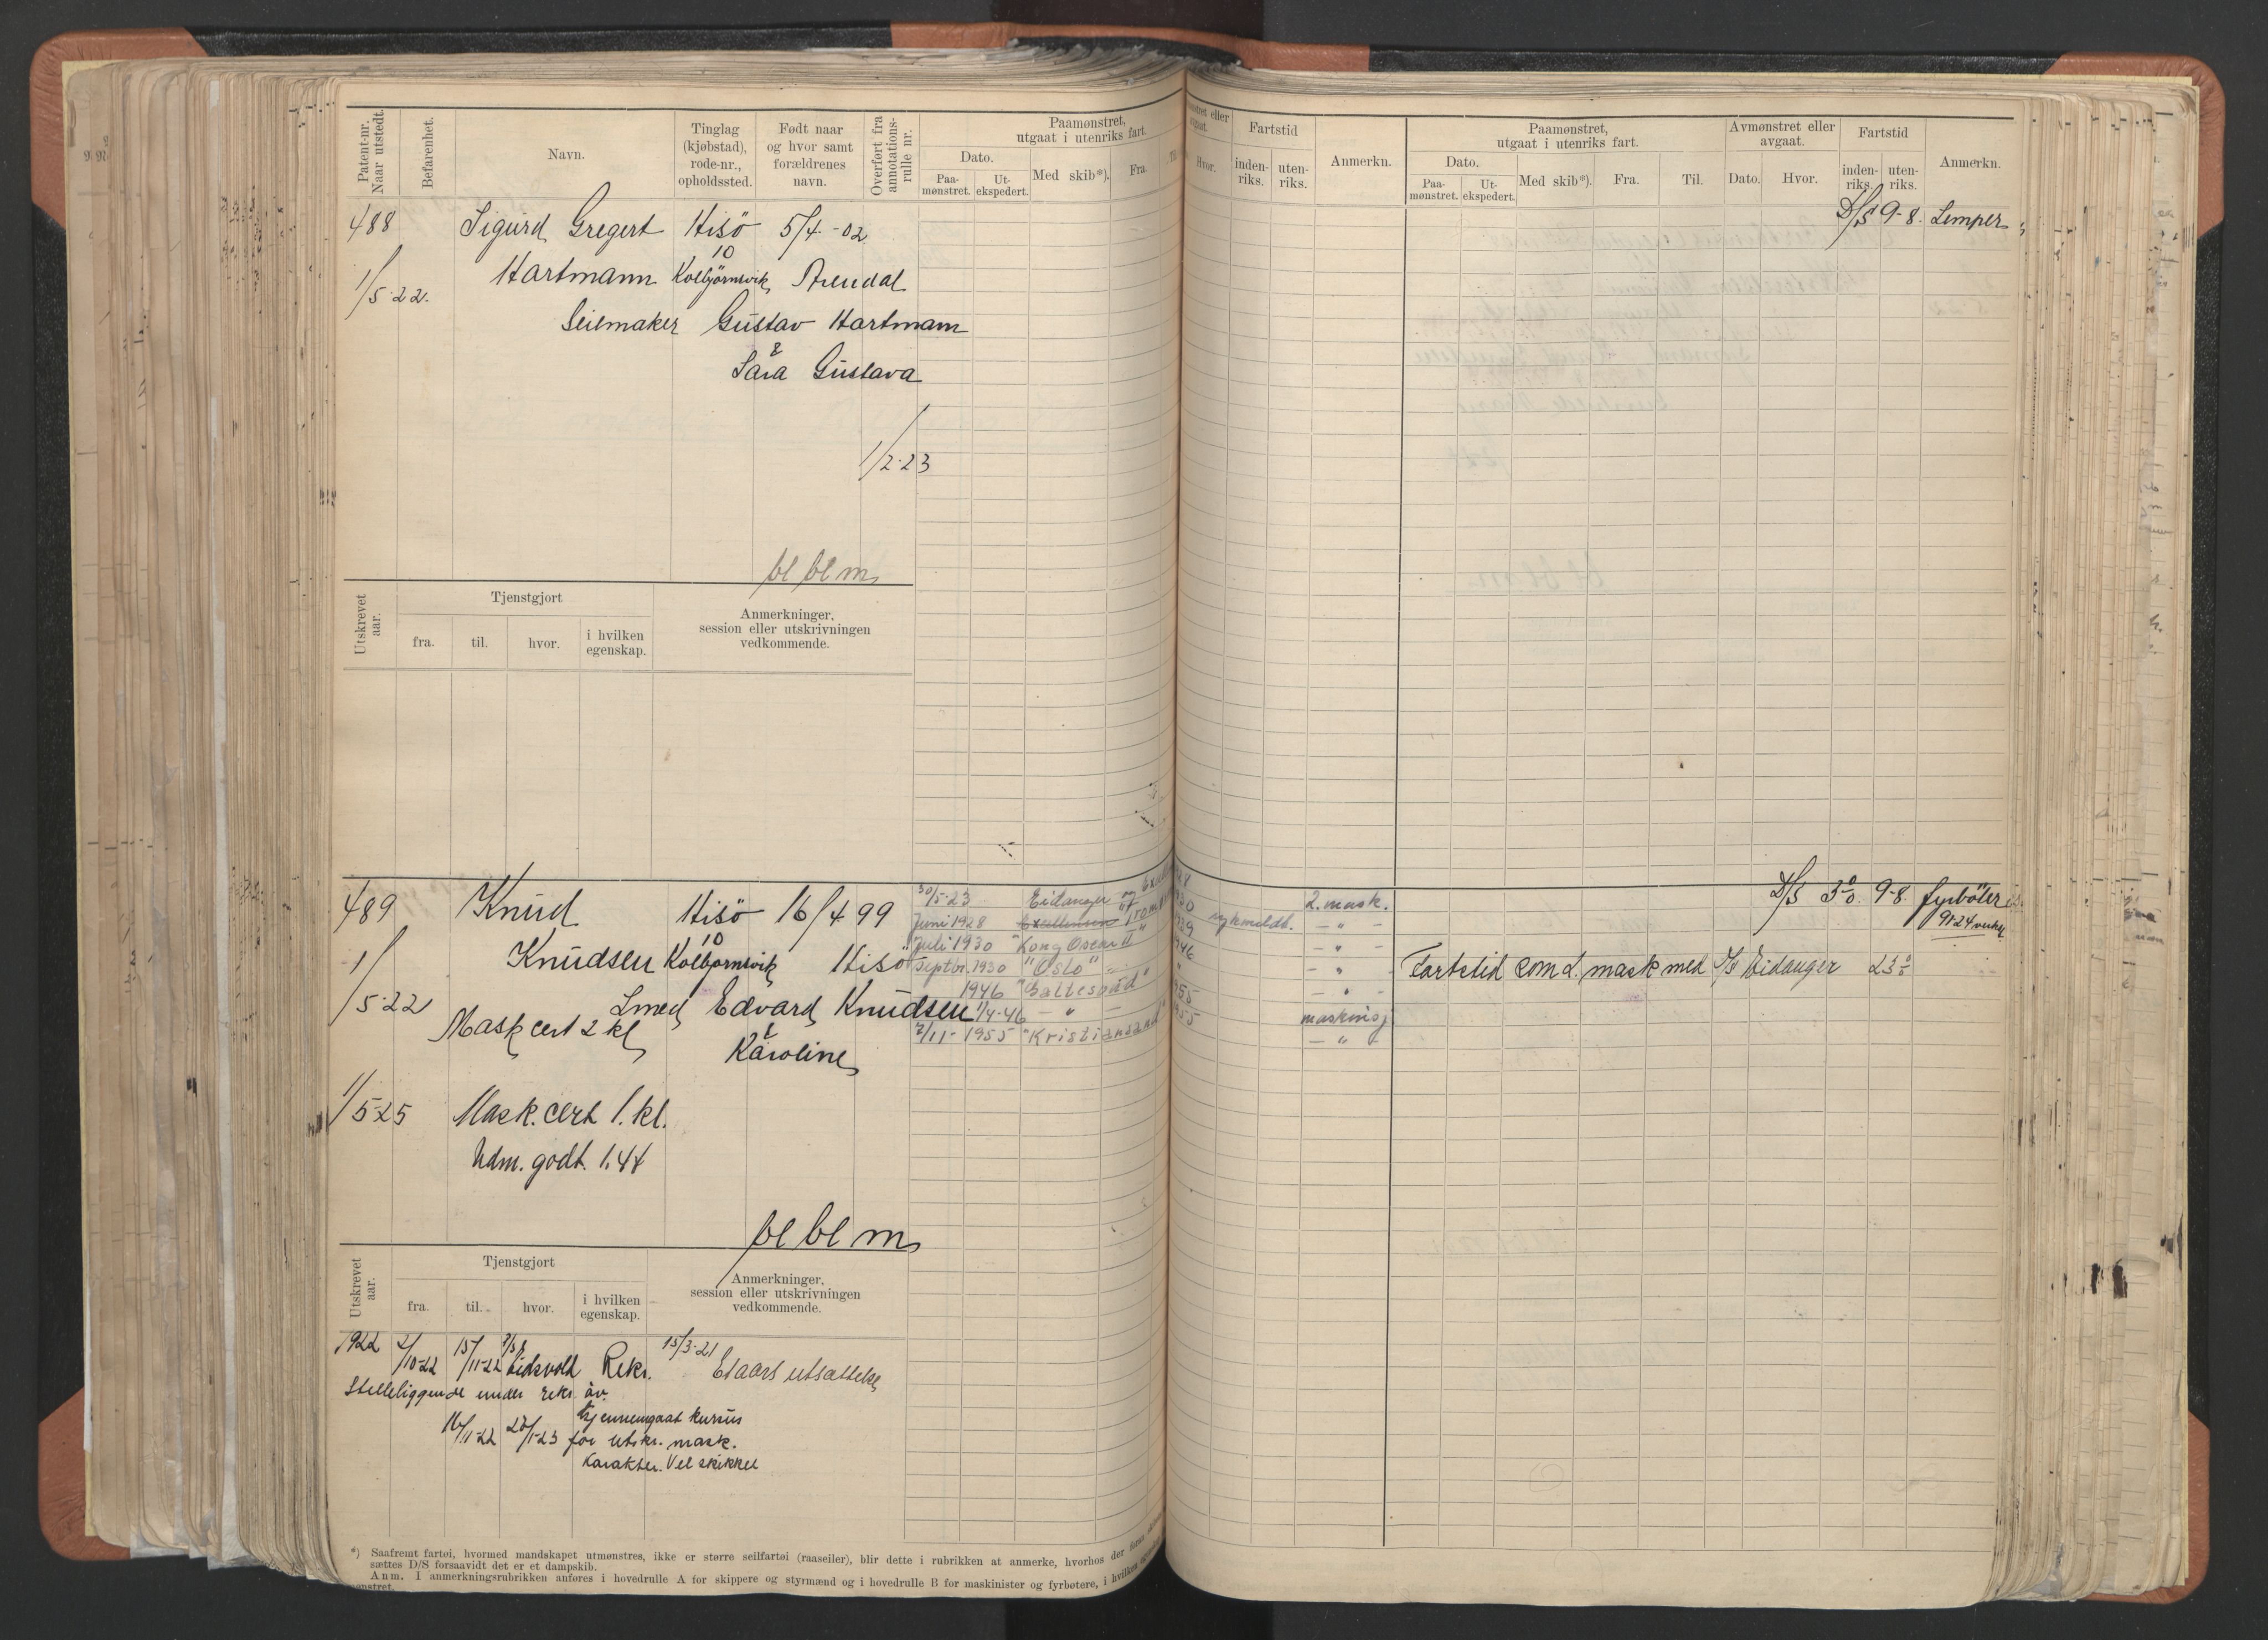 Patent-nr. Naar utstedt.
Befarenhet.
Navn.
Tinglag (kjøbstad), rode-nr., opholdssted.
Født naar og hvor samt forældrenes navn.
Overført fra annotations-rulle nr.
Paamønstret, utgaat i utenriks fart.
Dato.
Paa-mønstret.
Ut-ekspedert.
Med skib*).
Fra
488 Sigurd Gregert Hisö 5/4-02
10
1/5-22. Hartmann Kolbjörnsvik Arendal
Seilmaker Gustav Hartmann
&
Sara Gustava
1/2-23
bl bl m
Utskrevet aar.
Tjenstgjort
fra. til. hvor. i hvilken egenskap.
Anmerkninger, session eller utskrivningen vedkommende.
489 Knud Hisö 16/4 99
10
1/5-22 Knudsen Kolbjørnsvik Hisö
Smed Edvard Knudsen
Mask cert 2 kl
&
Karoline
1/5-25 Mask. cert 1. kl.
Udm. godt. 1.44
bl bl m
30/5-23 Eidanger
Juni 1928
Juli 1930 "Kong Oscar II"
Septbr. 1930 "Oslo"
1946 "Galtesund"
1/4-46 - " -
7/11- 1955 "Kristiansand"
Utskrevet aar.
Tjenstgjort
fra. til. hvor. i hvilken egenskap.
Anmerkninger, session eller utskrivningen vedkommende.
1922 2/10-22 15/11-22 P/S Eidsvold Rekr. 15/3-21 Et aars utsættelse
Stilleliggende under rekr. öv.
16/11-22 27/1-23 Gjennemgaat kursus
for utskr. mask.
Karakter. Vel skikket
*) Saafremt fartøi, hvormed mandskapet utmønstres, ikke er større seilfartøi (raaseiler), blir dette i rubrikken at anmerke, hvorhos der foran
sættes D/S forsaavidt det er et dampskib.
Anm. I anmerkningsrubrikken anføres i hovedrulle A for skippere og styrmænd og i hovedrulle B for maskinister og fyrbøtere, i hvilken
mønstret.
Hvor.
Fartstid
inden-riks. uten-riks.
Anmerkn.
Paamønstret, utgaat i utenriks fart.
Dato.
Paa-mønstret. Ut-ekspedert.
Med skib*). Fra. Til.
Avmønstret eller avgaat.
Dato. Hvor.
Fartstid
inden-riks. uten-riks.
Anmerkn.
D/S 9-8. Lemper
D/S 9-8. fyrböter
sykmeldt. 2. mask.
- " -
- " -
- " -
- " -
maskinisj
- " -
Fartstid som 2. mask med S/S Eidanger